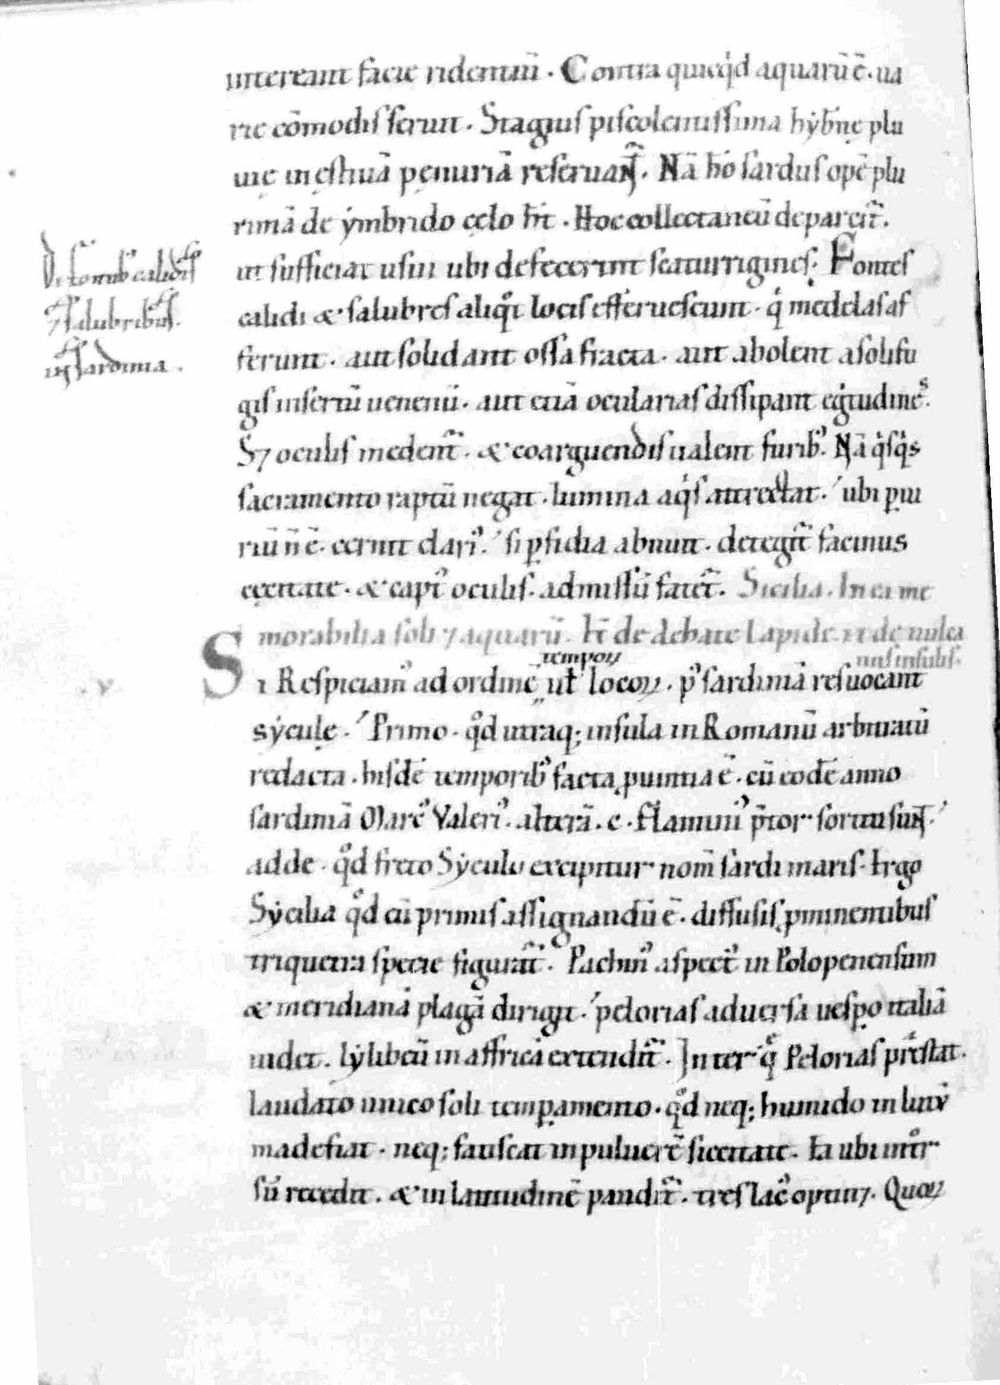 intereant facie ridentiū · Contra quicq̇d aquarū ē · ua
rie cōmodis serun̄t · Stagnis piscolentissima hẏb̄nę plu
uię in ęstiuā pęnuriā reseruan̄t · Nā hō sardus opē plu
rimā de ẏmbrido cęlo h̄t · Hoc collectaneū deparcit̄ ·
ut sufficiat usui ubi defecerint scaturrigines · Fontes
calidi & salubres aliq̊t locis efferuescunt · q̇ medelas af
ferunt · aut solidant ossa fracta · aut abolent a solifu
gis insertū uenenū · aut etiā ocularias dissipant ęgritudines ·
S; oculis medent̄ · & coarguendis ualent furib; · Nā q̇sq̇s
sacramento raptū negat · lumina aq̇s attrectat · ubi ꝑiu
riū n̄ ē · cernit clari᷒ · si ꝑfidia abnuit · detegit̄ facinus
cęcitate · & capt᷒ oculis · admissū fatet̄ · Sicilia · In ea me
morabilia soli ⁊ aquarū · Et de achate lapide · et de uulca
nus insulis ·
temporꝝ
Si Respiciam᷒ ad ordinē ut̄ locoꝝ · p᷒ sardiniā res uocant
sẏculę · Primo · q̊d utraq; insula in Romanū arbitratū
redacta · hisdē temporib; facta puintia ē · cū eodē anno
sardiniā Marc᷒ Valeri᷒ · alterā · c · Flamini᷒ p̄tor sortiti sun̄t ·
adde · q̊d freto Sẏculo excipitur nom̄ sardi maris · Ergo
Sẏcilia q̊d cū primis assignandū ē · diffusis pminentibus
triquetra specie figurat̄ · Pachin᷒ aspect᷒ in Polopenensum
& meridianā plagā dirigit · pelorias aduersa uesꝑo italiā
uidet · lẏlibeū in affricā extendit̄ · Inter q̄ Pelorias pręstat ·
laudato unico soli temꝑamento · q̊d neq; humido in lutū
madefiat · neq; fatiscat in puluerē siccitate · Ea ubi intror
sū recedit · & in latitudinē pandit̄ · tres lac᷒ optin; · Quoꝝ
De fontib; calidis
⁊ salubribus
in sardinia ·